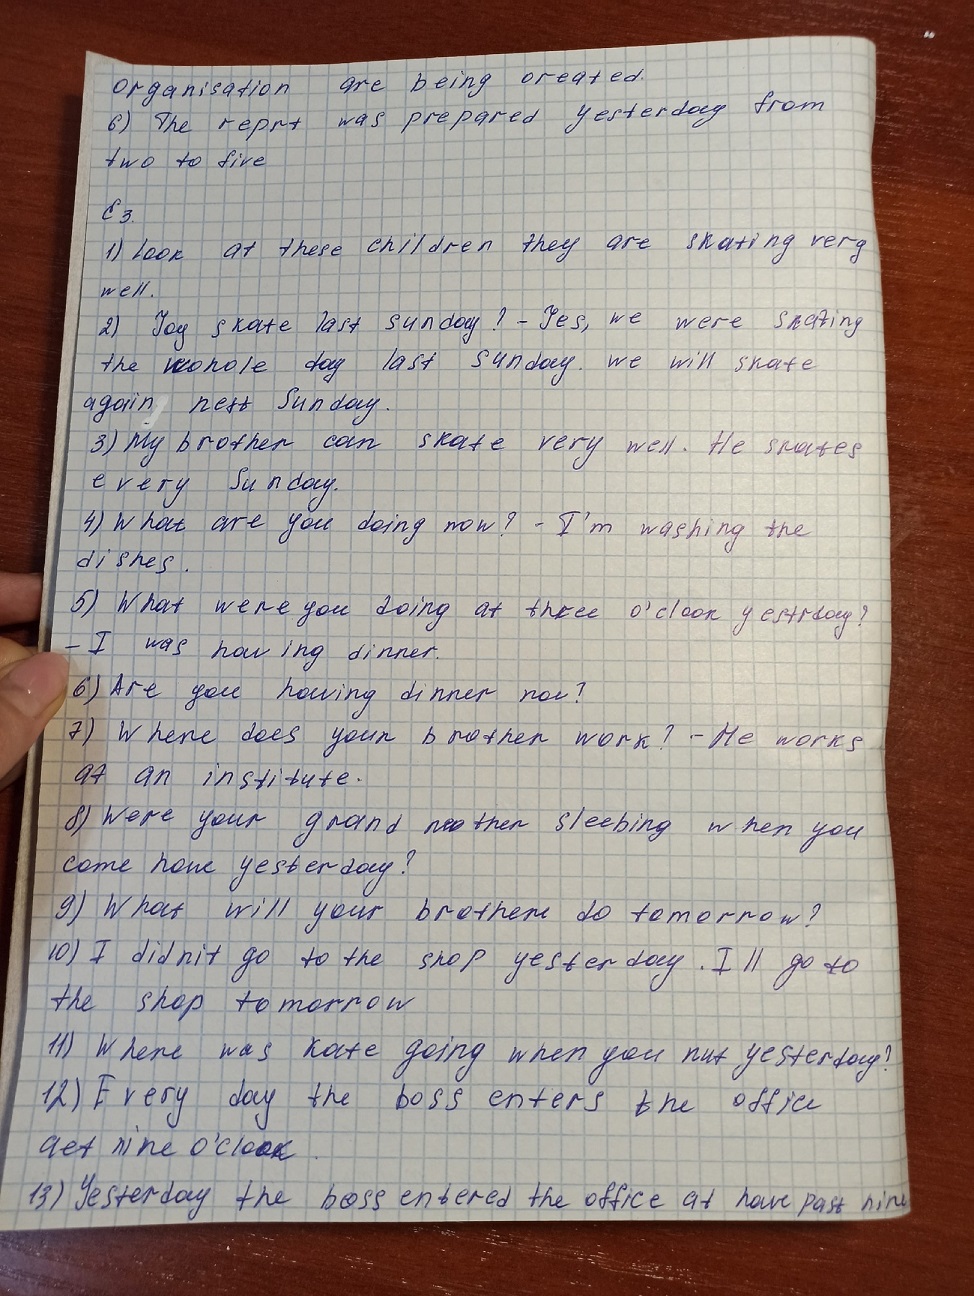 organisation are being oreated.
6) The reprt was prepared yesterday from
two to five
E3.
1) Look at these children they are skating very
well.
2) You skate last Sunday? - Yes, we were skating
the whole day last Sunday. we will skate
again, next Sunday.
3) My brother can skate very well. He skates
every Sunday.
4) What are you doing now? - I'm washing the
dishes.
5) What were you doing at three o'clook yestrday?
- I was having dinner.
6) Are you having dinner now?
7) Where does your brother work? - He works
at an institute.
8) Were your grand mother sleebing when you
come home yesterday?
9) What will your brother do tomorrow?
10) I didnit go to the shop yesterday. I ll go to
the shop tomorrow
11) Where was Kate going when you mut yesterday?
12) Every day the boss enters the office
aet nine o'clook.
13) Yesterday the boss entered the office at have past nine